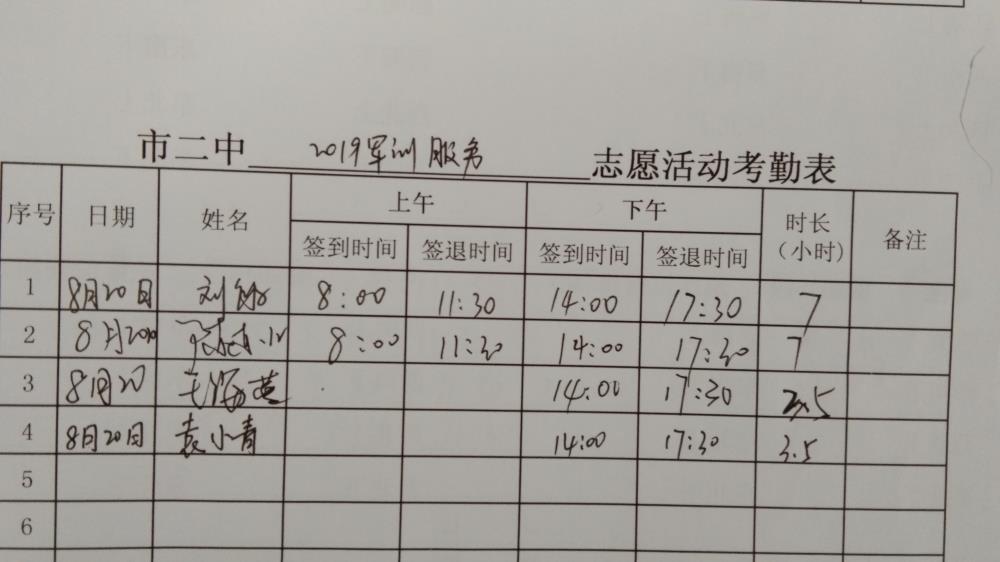 市二中 2019军训服务 志愿活动考勤表
序号 日期 姓名 上午 下午 时长（小时） 备注
签到时间 签退时间 签到时间 签退时间
1 8月20日 刘 8:00 11:30 14:00 17:30 7
2 8月20 8:00 11:30 14:00 17:30 7
3 8月20 王海英 14:00 17:30 3.5
4 8月20日 袁小青 14:00 17:30 3.5
5
6